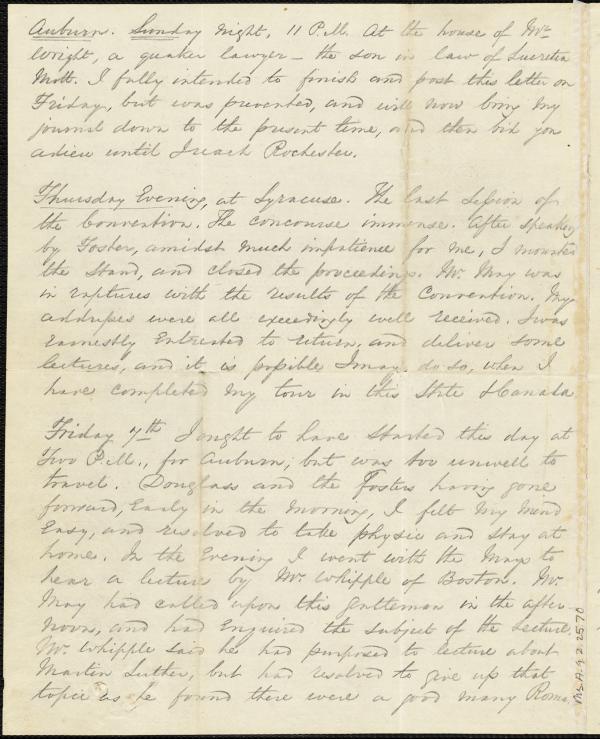 Auburn. Sunday Night, 11 P.M. At the house of Mr
Wright, a quaker lawyer – the son in law of Lucretia
Mott. I fully intended to finish and post this letter on
Friday, but was prevented, and will now bring my
journal down to the present time, and then bid you
adieu until I reach Rochester.
Thursday Evening, at Syracuse. The last Session of
the Convention. The concourse immense. After speaking
by Foster, amidst much impatience for me, I mounted
the Stand, and closed the proceedings. Mr. May was
in raptures with the results of the Convention. My
addresses were all exceedingly well received. I was
Earnestly Entreated to return, and deliver some
lectures, and it is possible I may do so, when I
have completed my tour in this State & Canada
Friday 7th I ought to have started this day at
Two P.M., for Auburn; but was too unwell to
travel. Douglass and the Fosters having gone
forward, Early in the Morning, I felt my mind
Easy, and resolved to take physic and stay at
home. In the Evening I went with the Mays to
hear a lecture by Mr. Whipple of Boston. Mr.
May had called upon this gentleman in the after-
noon, and had Enquired the subject of the lecture.
Mr. Whipple said he had purposed to lecture about
Martin Luther, but had resolved to give up that
topic as he found there were a good many Roma
Ms.A.9.2.25.70